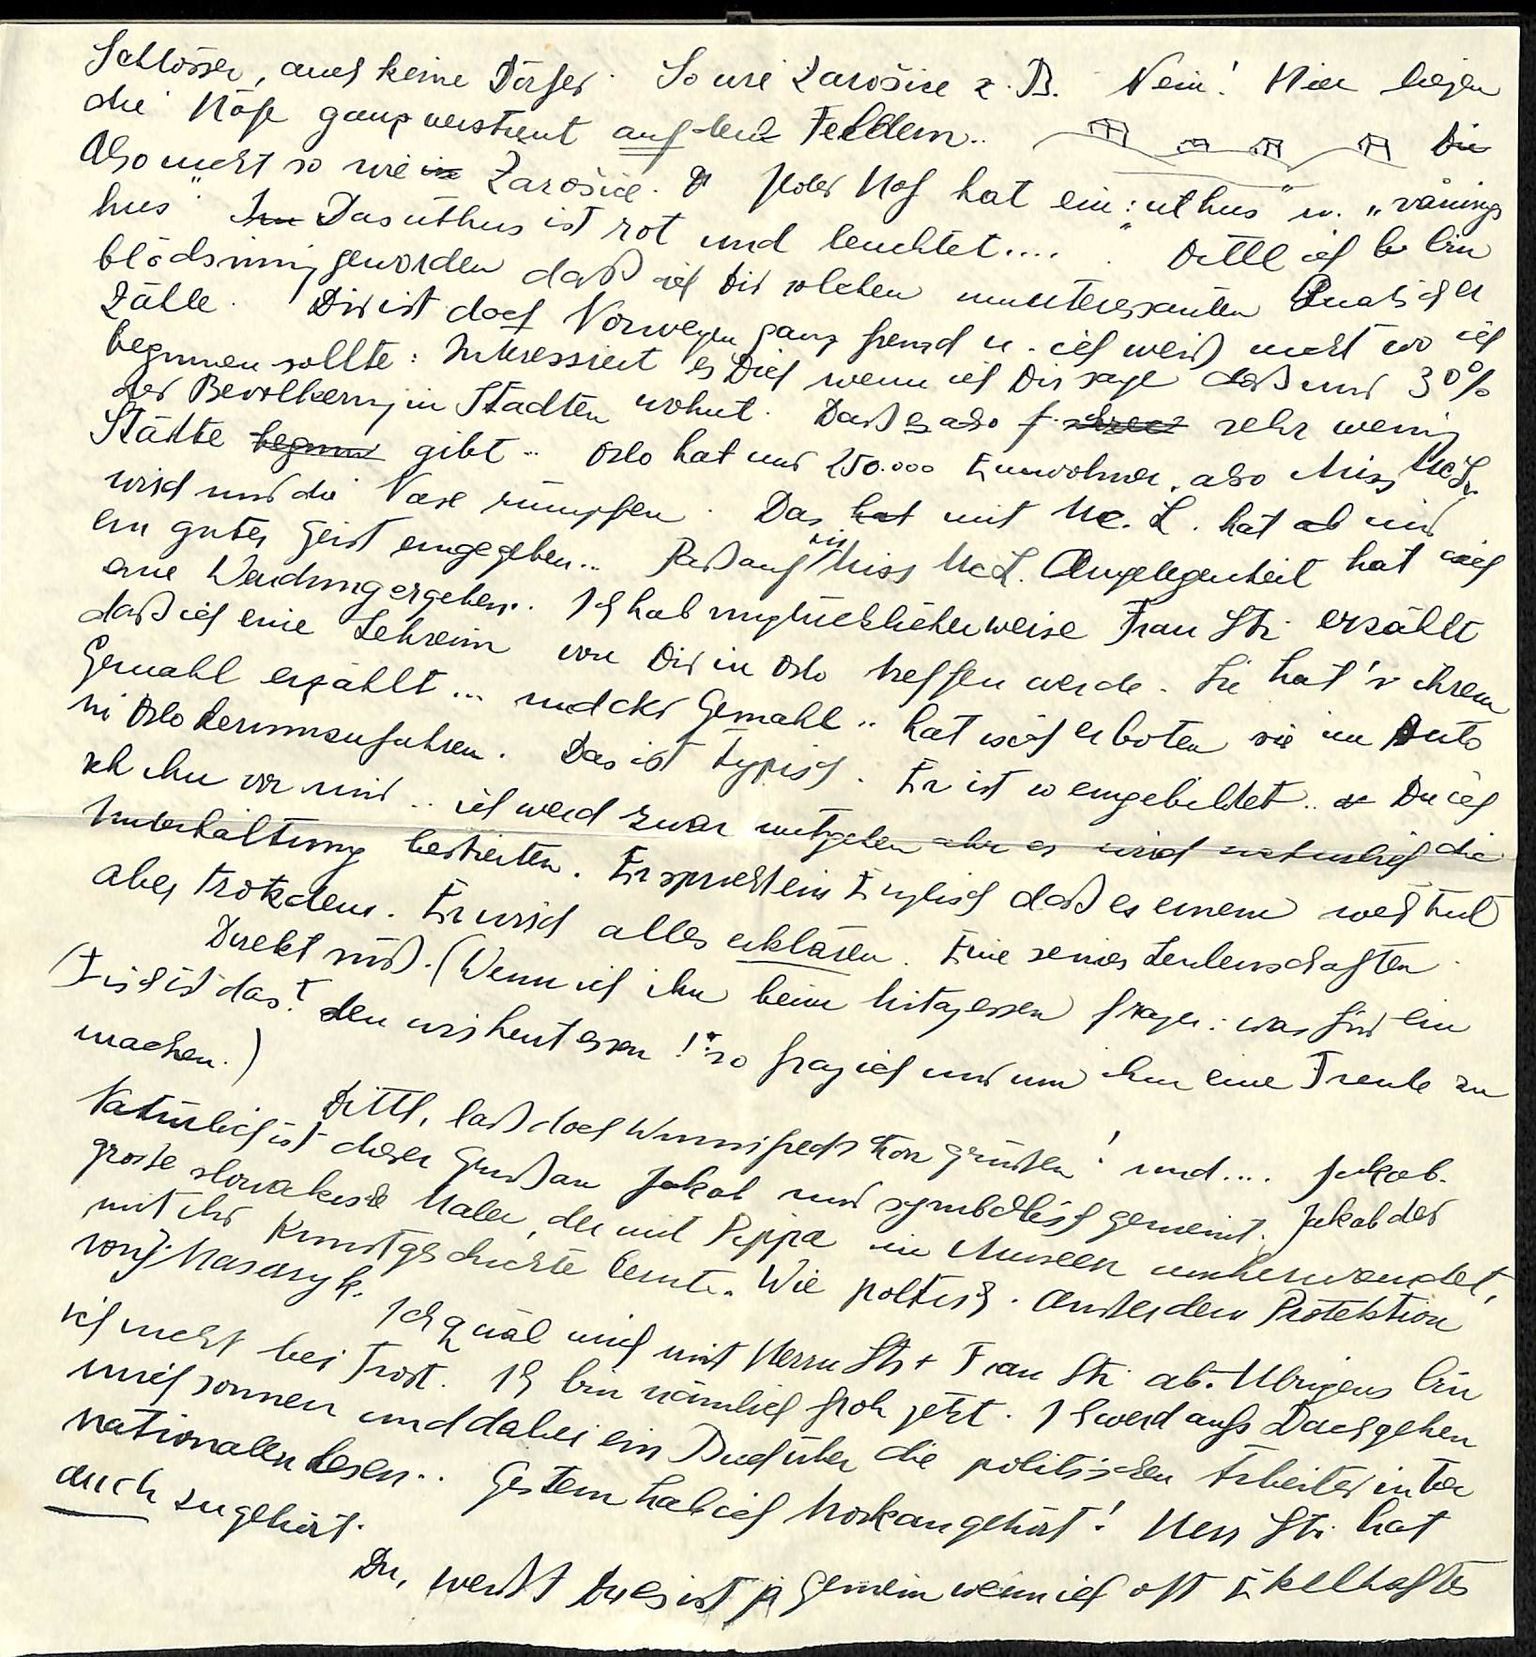 Schlösser, auch keine Dörfer. So wie Zarošice z. B. Nein! Hier liegen
die Höfe ganz verstreut auf den Feldern..
Also nicht so wie in Žarošice. Jeder Hof hat ein „uthus" u. „vånings
hus" Das uthus ist rot und leuchtet.... Dittl ich bin
blödsinnig geworden daß ich Dir solchen uninteressanten Quatsch er
zälle. Dir ist doch Norwegen ganz fremd u. ich weiß nicht wo ich
beginnen sollte: Interessiert es Dich wenn ich Dir sage daß nur 30%
der Bevölkerung in Städten wohnt. Daß es also sehr wenig
Städte gibt.. Oslo hat nur 250.000 Einwohner, also Miss McL.
wird nur die Nase rümpfen. Das hat mit Mc. L. hat mir
ein guter Geist eingegeben... Paß auf in Miss McL. Angelegenheit hat sich
eine Wendung ergeben. Ich hab unglücklicherweise Frau Str. erzählt
daß ich eine Lehrerin von Dir in Oslo treffen werde. Sie hat's ihrem
Gemahl erzählt... und der Gemahl.. hat sich erboten sie im Auto
in Oslo herumzufuhren. Das ist typisch. Er ist so eingebildet.. Du ich
seh ihn vor mir.. ich werd zwar mitgehen aber er wird natürlich die
Unterhaltung bestreiten. Er spricht ein Englisch daß es einem weh tut
aber trotzdem. Er wird alles erklären. Eine seiner Leidenschaften.
Direkt süß. (Wenn ich ihn beim Mitagessen frage: was für ein
Fisch ist das? den wir heut essen! so frag ich nur um ihm eine Freude zu
machen.)
Dittl, laß doch Winnifreds Kon grüßen! und.... Jakob.
Natürlich ist dieser Gruß an Jakob nur symbolisch gemeint. Jakob der
große slovakische Maler, der mit Pippa in Museen umherwandelt,
mit ihr Kunstgeschichte lernte. Wie poltisch. Außerdem Protektion
von J. Masaryk.
Ich quäl mich mit Herrn Str + Frau Str. ab. Übrigens bin
ich nicht bei Trost. Ich bin nämlich froh jetzt. Ich werd aufs Dach gehen
mich sonnen und dabei ein Buch über die politischen Arbeiter inter
nationalen lesen.. Gestern hab ich Norkan gehört! Herr Str. hat
auch zugehört.
Du, weißt Du es ist ja gemein wenn ich oft Ekelhaftes